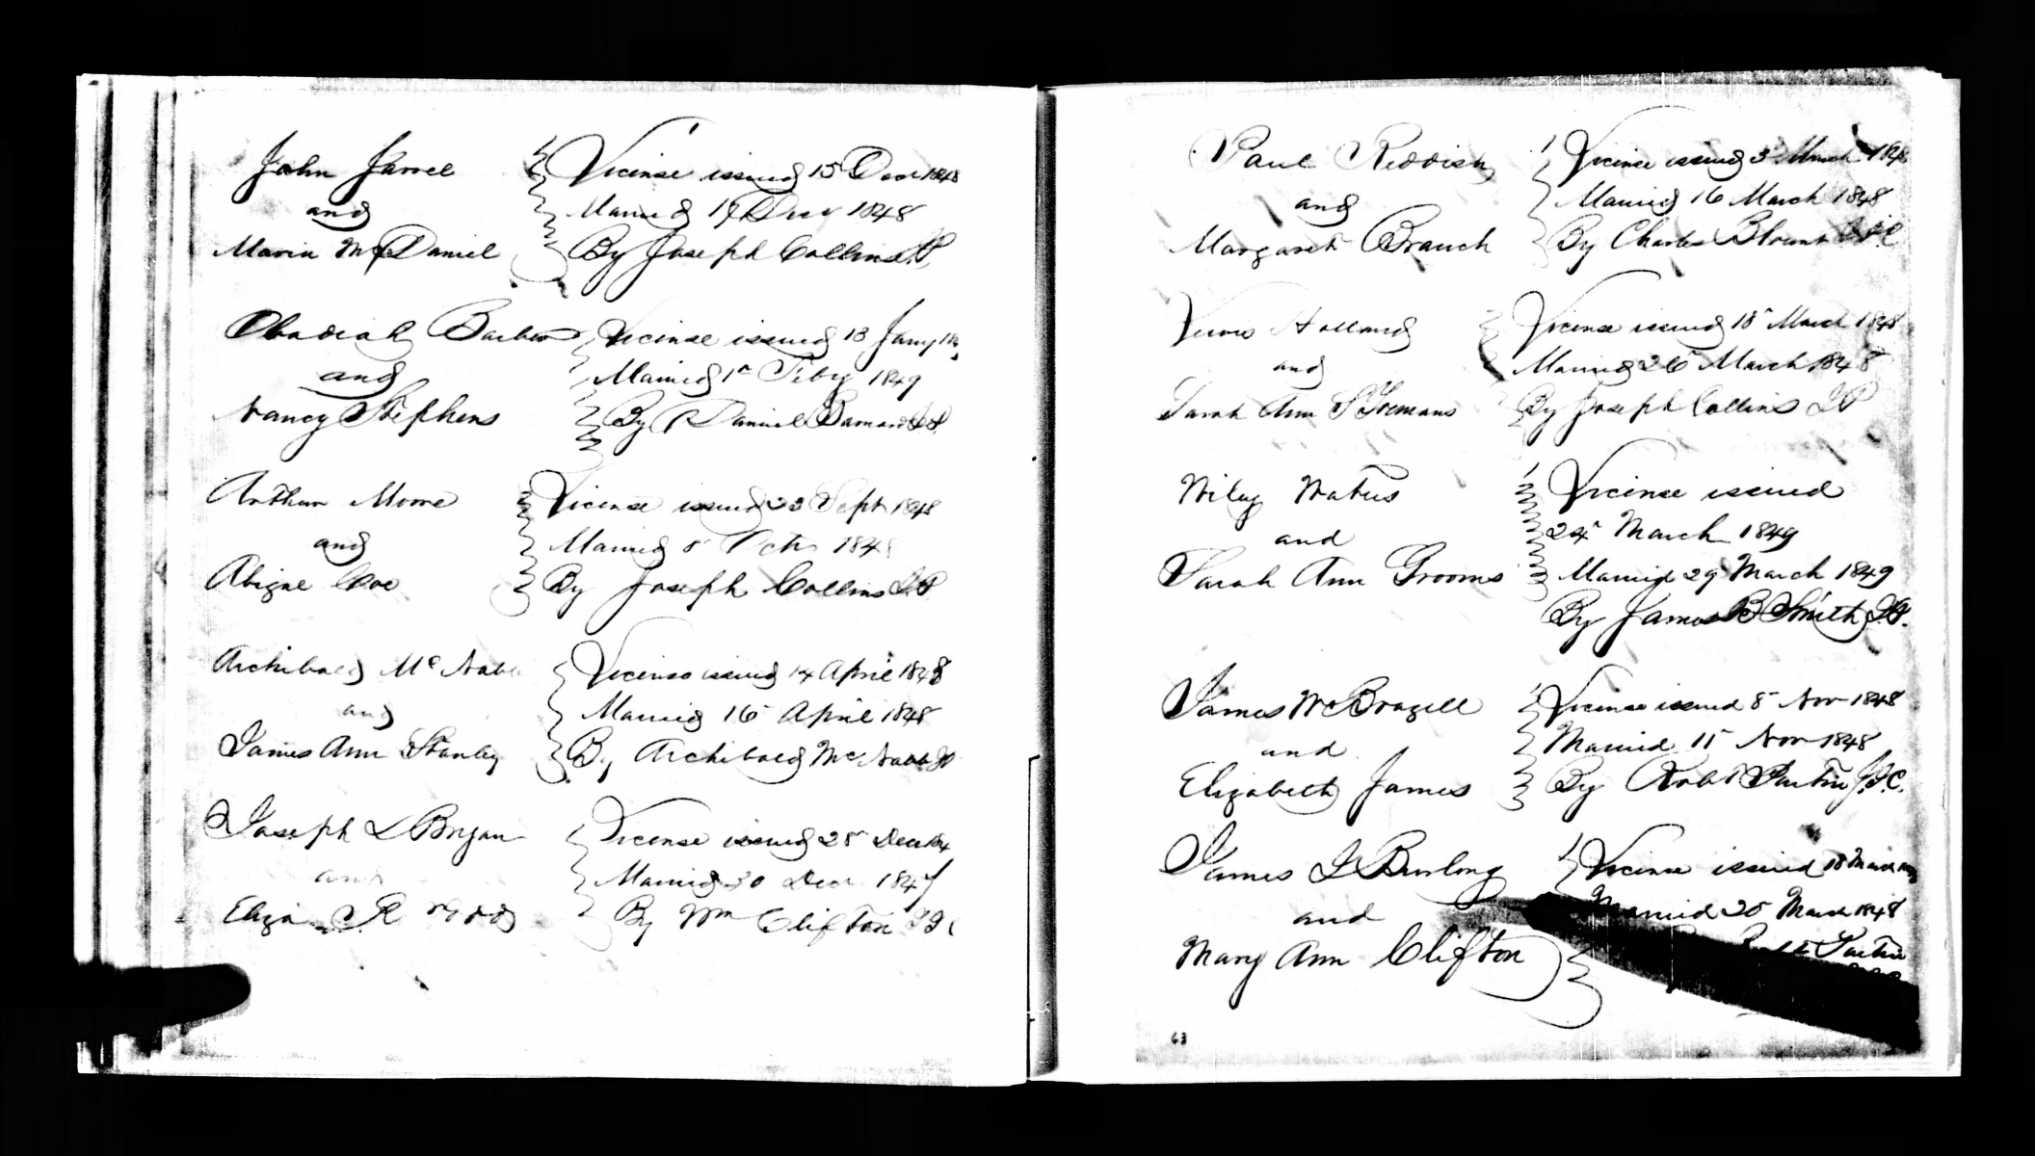 John Jarrel
and
Maria McDaniel
License issued 15 Decr 1848
Married 17 Decr 1848
By Joseph Collins J.P.
Obadiah Barber
and
Nancy Stephens
License issued 13 Jany
Married 1st Feby 1849
By Daniel J.P.
Arthur Moore
and
Abigal Coe
License issued 23 Sept 1848
Married 5 Octr 184
By Joseph Collins J.P.
Archibald McNabb
and
James Ann Stanley
License issued 14 April 1848
Married 16 April 1848
By Archibald McNabb JP
Joseph L Bryan
and
Eliza R
License issued 25 Decr
Married 30 Decr 1847
By Wm Clifton
Paul Reddish
and
Margaret Branch
License issued 3 March
Married 16 March 1848
By Charles Blount
Holland
and
Sarah Ann
License issued 15 March 1848
Married 26 March 1848
By Joseph Collins JP
Wiley
and
Sarah Ann Grooms
License issued
24 March 1849
Married 29 March 1849
By James B Smith J.P.
James McBrazell
and
Elizabeth James
License issued 8 Nov 1848
Married 15 Nov 1848
By Robt J.I.C.
James J Burlong
and
Mary Ann Clifton
License issued 18 March
Married 20 March 1848
63